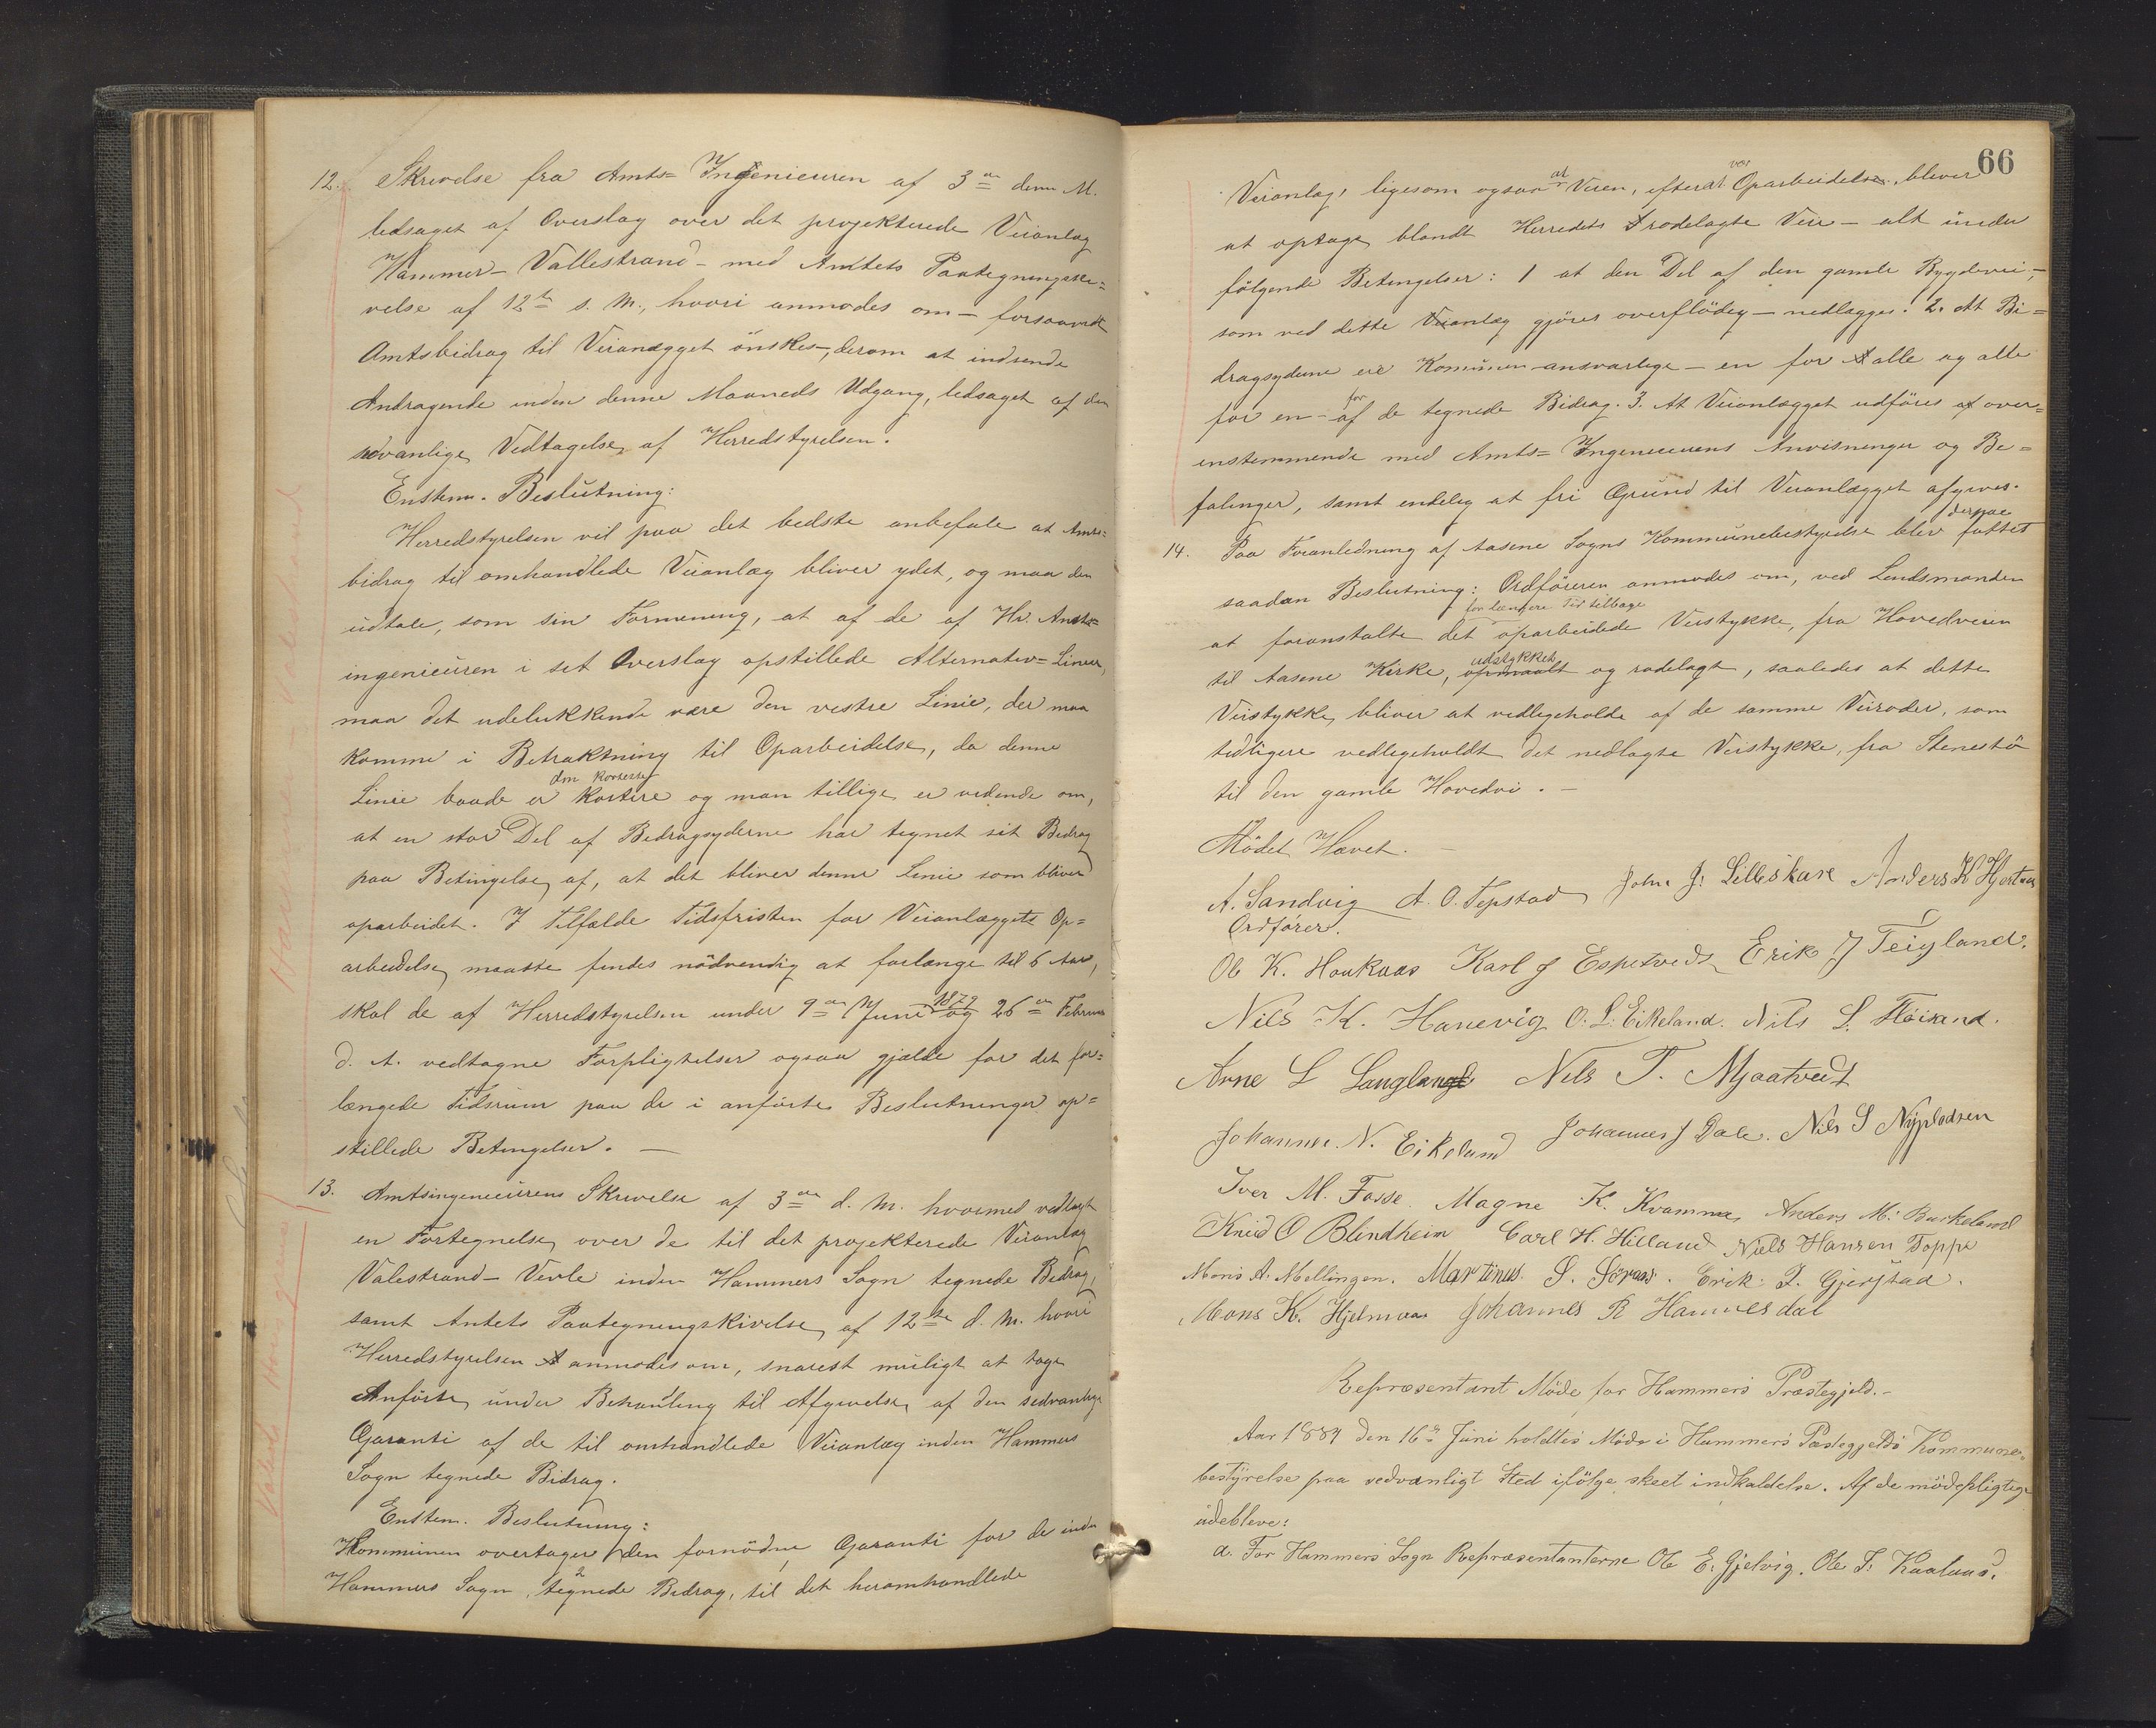 12. Skrivelse fra Amts-Ingenieuren af 3die denne M.
ledsaget af Overslag over det projekterede Veianlæg
Hammer-Vallestrand - med Amtets Paategningsskri=
velse af 12te s. M., hvori anmodes om - forsaavidt
Amtsbidrag til Veianægget önskes -, derom at indsende
Andragende inden denne Maaneds Udgang, ledsaget af den
sedvanlige Vedtagelse af Herredstyrelsen.
Enstem. Beslutning:
Herredstyrelsen vil paa det bedste anbefale at Amts=
bidrag til omhandlede Veianlæg bliver ydet, og maa den
udtale, som sin Formening, at af de af Hr. Amts=
ingenieuren i set Overslag opstillede Alternativ=Linier,
maa det udelukkende være den vestre Linie, der maa
komme i Betraktning til Oparbeidelse, da denne
den korteste
Linie baade er kortere og man tillige er vidende om,
at en stor Del af Bidragsyderne har tegnet sit Bidrag
paa Betingelse af, at det bliver denne Linie som bliver
oparbeidet. I tilfælde Tidsfristen for Veianlæggets Op=
arbeidelse maatte findes nödvendig at forlænge til 6 Aar,
1879
skal de af Herredstyrelsen under 9de Juni og 26de Februar
d. A. vedtagne Forpligtelser ogsaa gjælde for det for=
længede Tidsrum paa de i anförte Beslutninger op=
stillede Betingelser. —
13. Amtsingenieurens Skrivelse af 3die d. M. hvormed vedlagt
en Fortegnelse over de til det projekterede Veianlæg
Valestrand - Verle inden Hammers Sogn tegnede Bidrag,
samt Amtets Paategningskrivelse af 12te d. M. hvori
Herredstyrelsen anmodes om, snarest muligt at tage
Anförte under Behanling til Afgivelse af den sedvanlige
Garanti af de til omhandlede Veianlæg inden Hammers
Sogn tegnede Bidrag.
Enstem. Beslutning:
Kommunen overtager den fornödne Garanti for de inden
Hammers Sogn tegnede Bidrag, til det heromhandlede
66
Veianlæg, ligesom ogsaa at Veien, efterat Oparbeidelse, bliver
at optage blandt Herredets rodelagte Veie - alt under
fölgende Betingelser: 1 at den Del af den gamle Bygdevei -,
som ved dette Veianlæg gjöres overflödig - nedlægges. 2. At Bi=
dragsyderne ere Kommunen ansvarlige - en for alle og alle
for
for en - af de tegnede Bidrag. 3. At Veianlægget udföres over=
enstemmende med Amts=Ingenieurens Anvisninger og Be=
falinger, samt endelig at fri Grund til Veianlægget afgives.
derpaa
14. Paa Foranledning af Aasene Sogns Kommunebestyrelse blev fattet
saadan Beslutning: Ordföreren anmodes om, ved Lendsmanden
for længere Tid tilbage
at foranstalte det oparbeidede Veistykke, fra Hovedveien
udstykket
til Aasene Kirke, opmaalt og rodelagt, saaledes at dette
Veistykke bliver at vedligeholde af de samme Veiroder, som
tidligere vedligeholdt det nedlagte Veistykke, fra Stenestö
til den gamle Hovedvei. —
Mödet Hævet. —
A. Sandvig A. O. Tepstad John J. Lilleskare Anders K Hjertaas
Ordförer.
Ole K. Haukaas Karl J Espetvedt Erik J Teigland.
Nils K. Hanevig O. L. Eikeland. Nils L. Flöisand.
Arne L Langland Nils T. Mjaatvedt
Johannes N. Eikeland Johannes J Dale. Nils S Nypladsen
Iver M. Fosse. Magne K. Kvamme Anders M. Burkeland
Knud O Blindheim Carl H. Hilland Niels Hansen Toppe
Mons A. Mellingen. Martinus S. Söraas. Erik I. Gjerstad.
Mons K. Hjelmaas Johannes R Hannesdal
Repræsentant Möde for Hammers Præstegjeld.-
Aar 1884 den 16de Juni holdtes Möde i Hammers Præstegjelds Kommune=
bestyrelse paa sedvanligt Sted ifölge skeet indkaldelse. Af de mödepligtige
udebleve:
a. For Hammers Sogn Repræsentanterne Ole E. Gjelvig. Ole I. Kaaland.